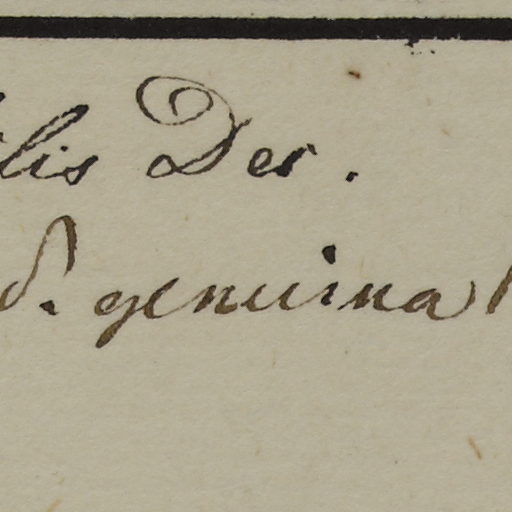 lis Der.
d. genuina